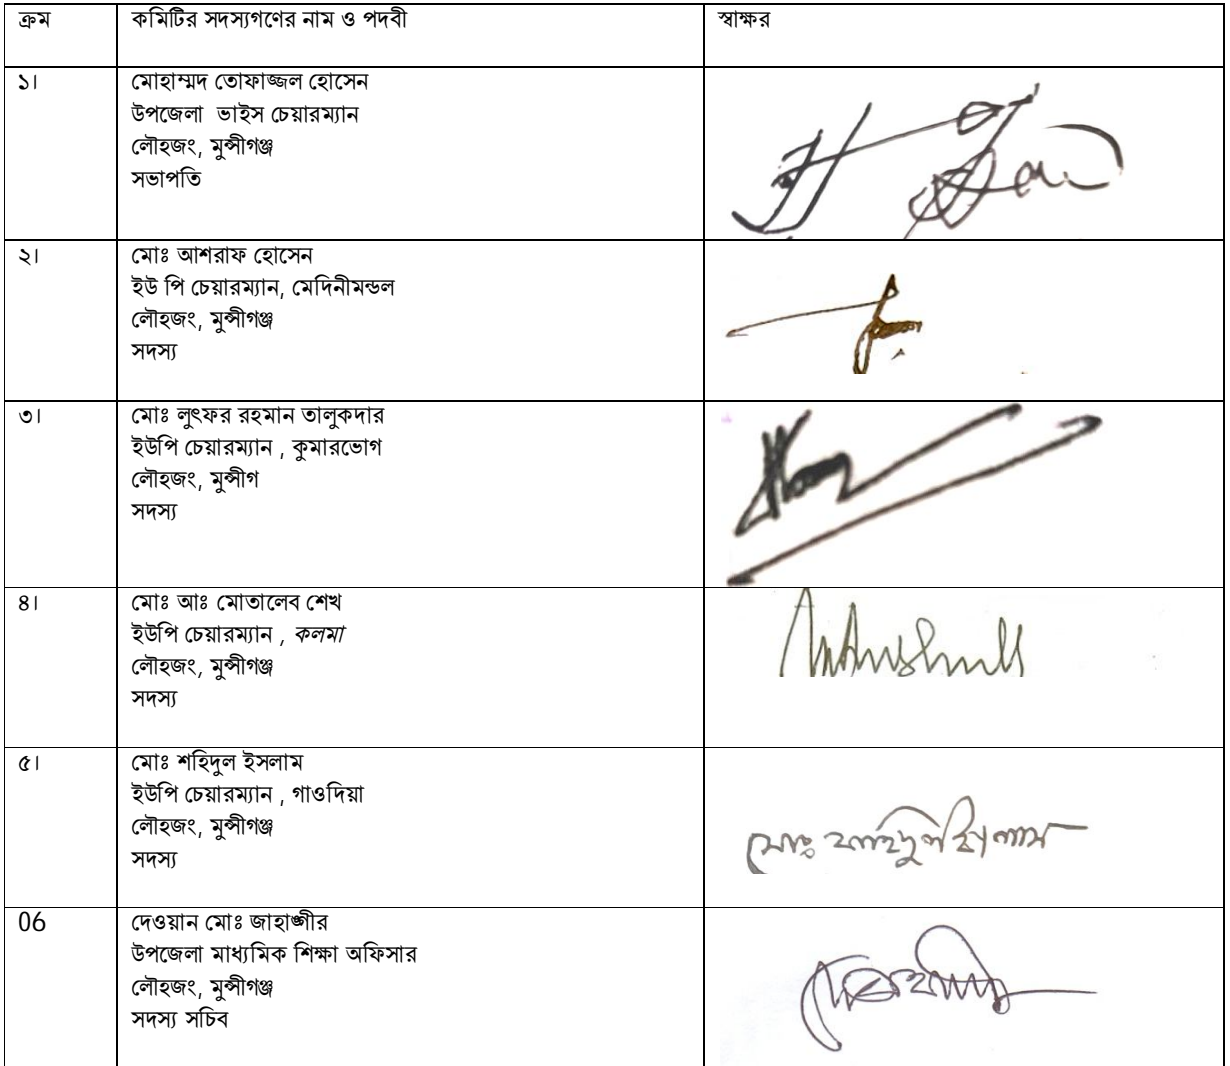 ক্রম কমিটির সদস্যগণের নাম ও পদবী স্বাক্ষর
১। মোহাম্মদ তোফাজ্জল হোসেন
উপজেলা ভাইস চেয়ারম্যান
লৌহজং, মুন্সীগঞ্জ
সভাপতি
২। মোঃ আশরাফ হোসেন
ইউ পি চেয়ারম্যান, মেদিনীমন্ডল
লৌহজং, মুন্সীগঞ্জ
সদস্য
৩। মোঃ লুৎফর রহমান তালুকদার
ইউপি চেয়ারম্যান , কুমারভোগ
লৌহজং, মুন্সীগ
সদস্য
৪। মোঃ আঃ মোতালেব শেখ
ইউপি চেয়ারম্যান , কলমা
লৌহজং, মুন্সীগঞ্জ
সদস্য
৫। মোঃ শহিদুল ইসলাম
ইউপি চেয়ারম্যান , গাওদিয়া
লৌহজং, মুন্সীগঞ্জ
সদস্য
06 দেওয়ান মোঃ জাহাঙ্গীর
উপজেলা মাধ্যমিক শিক্ষা অফিসার
লৌহজং, মুন্সীগঞ্জ
সদস্য সচিব